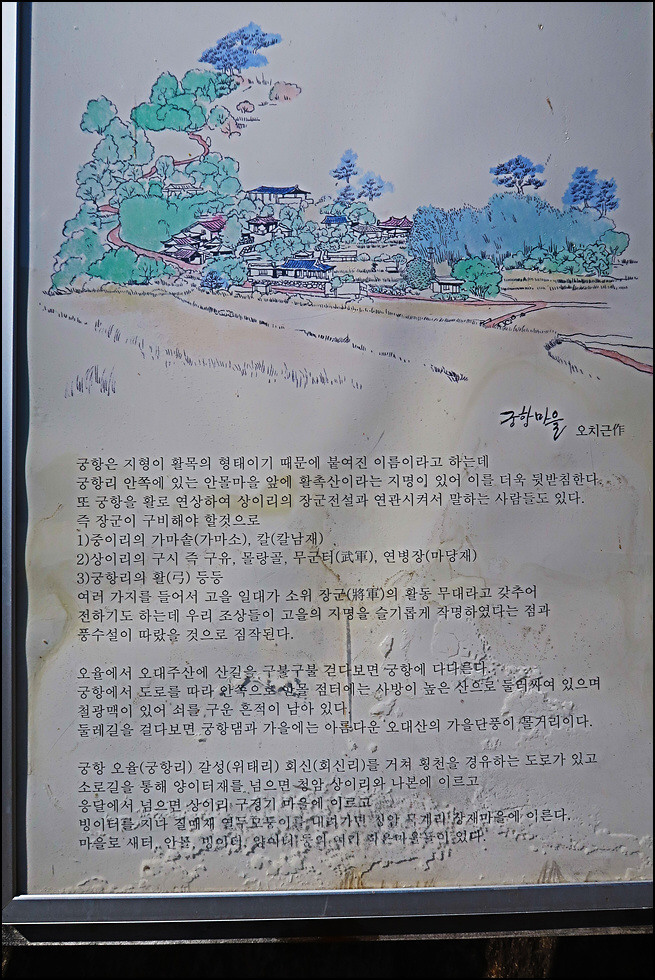 궁항마을
오치근作
궁항은 지형이 활목의 형태이기 때문에 붙여진 이름이라고 하는데
궁항리 안쪽에 있는 안몰마을 앞에 활촉산이라는 지명이 있어 이를 더욱 뒷받침한다.
또 궁항을 활로 연상하여 상이리의 장군전설과 연관시켜서 말하는 사람들도 있다.
즉 장군이 구비해야 할것으로
1)중이리의 가마솥(가마소), 칼(칼남재)
2)상이리의 구시 즉 구유, 몰랑골, 무군터(武軍), 연병장(마당재)
3)궁항리의 활(弓) 등등
여러 가지를 들어서 고을 일대가 소위 장군(將軍)의 활동 무대라고 갖추어
전하기도 하는데 우리 조상들이 고을의 지명을 슬기롭게 작명하였다는 점과
풍수설이 따랐을 것으로 짐작된다.
오율에서 오대주산에 산길을 구불구불 걷다보면 궁항에 다다른다.
궁항에서 도로를 따라 안쪽으로 안몰 점터에는 사방이 높은 산으로 둘러싸여 있으며
철광맥이 있어 쇠를 구운 흔적이 남아 있다.
둘레길을 걸다보면 궁항댐과 가을에는 아름다운 오대산의 가을단풍이 볼거리이다.
궁항 오율(궁항리) 갈성(위태리) 회신(회신리)를 거쳐 횡천을 경유하는 도로가 있고
소로길을 통해 양이터재를 넘으면 청암 상이리와 나본에 이르고
응달에서 넘으면 상이리 구정기 마을에 이르고
빙이터를 지나 질매재 열두모퉁이를 내려가면 청암 장재마을에 이른다.
마을로 새터, 안몰, 빙이터, 양이터 등의 여러 작은마을들이 있다.